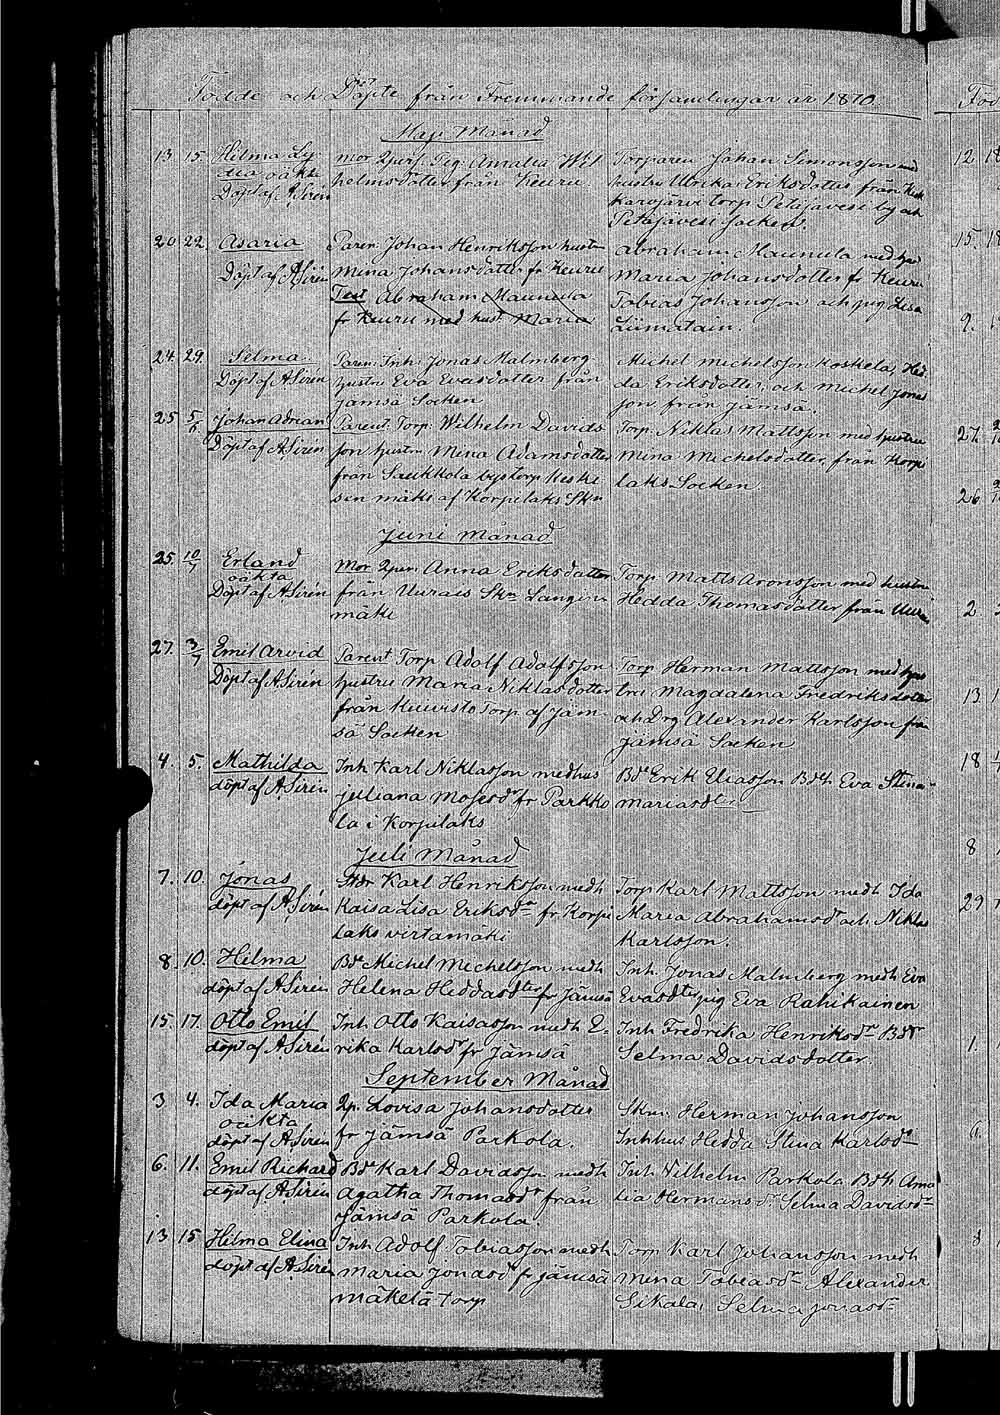 Födde och Döpte från Fremmande församlingar år 1870.
Maji Månad
13. 15. Hilma Ly
dia oäkta
Döpt af A Sirén
Mor Qvinsp. Pig. Amalia Wil
helmsdotter från Keuru.
Torparen Johan Simonsson med
hustru Ulrika Eriksdotter från
karvjärvi torp Petäjävesi by och
Petäjävesi Socken.
20 22. Asaria
Döpt af A Sirén
Paren. Johan Henriksson hustru
Mina Johansdotter fr Keuru
Test Abraham Maunula
fr Keuru med hust. Maria
Abraham Maunula med hus
Maria Johansdotter fr Keuru
Tobias Johansson och pig Lisa
Liimatain.
24. 29. Selma.
Döpt af A Sirén
Paren: Inh: Jonas Malmberg
hustru Eva Evasdotter från
Jämsä Socken
Michel Michelsson Koskela, Hed
da Eriksdotter, och Michel Jonas
son från Jämsä.
25 5/6 Johan Adrian
Döpt af A Sirén
Parent: Torp: Wilhelm Davids
son hustru Mina Adamsdotter
från Saukkola bys torp Keski
sen mäki af Korpilaks Skn
Torp. Niklas Mattsson med hustru
Mina Michelsdotter, från Korpi
laks Socken.
Juni Månad
25. 10/7 Erland
oäkta
Döpt af A Sirén
Mor Qper. Anna Eriksdotter
från Uurais Skn Langin
mäki
Torp Matts Aronsson med hustru
Hedda Thomasdotter från Uurai
27. 3/7 Emil Arvid
Döpt af A Sirén
Parent Torp Adolf Adolfsson
hustru Maria Niklasdotter
från Kuuvisto Torp af Jäm-
sä Socken
Torp Herman Mattsson med hus
tru Magdalena Fredriksdotter
och Drg Alexander Karlsson från
Jämsä Socken
4. 5. Mathilda
döpt af A Sirén
Inh Karl Niklasson med hus
Juliana Mosesdr fr Parkko
la i Korpilaks
Bd Erik Eliasson Bdh Eva Stina
Mariasdter
Juli Månad
7. 10. Jonas
döpt af A Sirén
Karl Henriksson medh
Kaisa Lisa Eriksdr fr Korpi
laks virtamäki
Torp Karl Mattsson medh Ida
Maria Abrahamsdr och Niklas
Karlsson.
8. 10. Hilma
döpt af A Sirén
Bd Michel Michelsson medh
Helena Heddasdter fr Jämsä
Inh. Jonas Malmberg medh Eva
Evasdter pig Eva Rahikainen
15. 17. Otto Emil
döpt af A Sirén
Inh Otto Kaisasson medh E-
rika Karlsdr fr Jämsä
Inh Fredrika Henriksdr Bdr
Selma Davidsdotter.
September Månad
3 4. Ida Maria
oäkta
döpt af A Sirén
Qp. Lovisa Johansdotter
fr Jämsä Parkola.
Skm. Herman Johansson
Inh hus Hedda Stina Karlsdr
6. 11. Emil Richard
döpt af A Sirén
Bd Karl Davidsson medh
Agatha Thomasdr från
Jämsä Parkola.
Inh. Wilhelm Parkola Bdh Ama
lia Hermansdr Selma Davidsdr
13 15 Hilma Elina
döpt af A Sirén
Inh Adolf Tobiasson medh
Maria Jonasd fr Jämsä
Mäkelä torp
Torp Karl Johansson medh
Mina Tobiasdr Alexander
Sikala, Selma Jonasdr